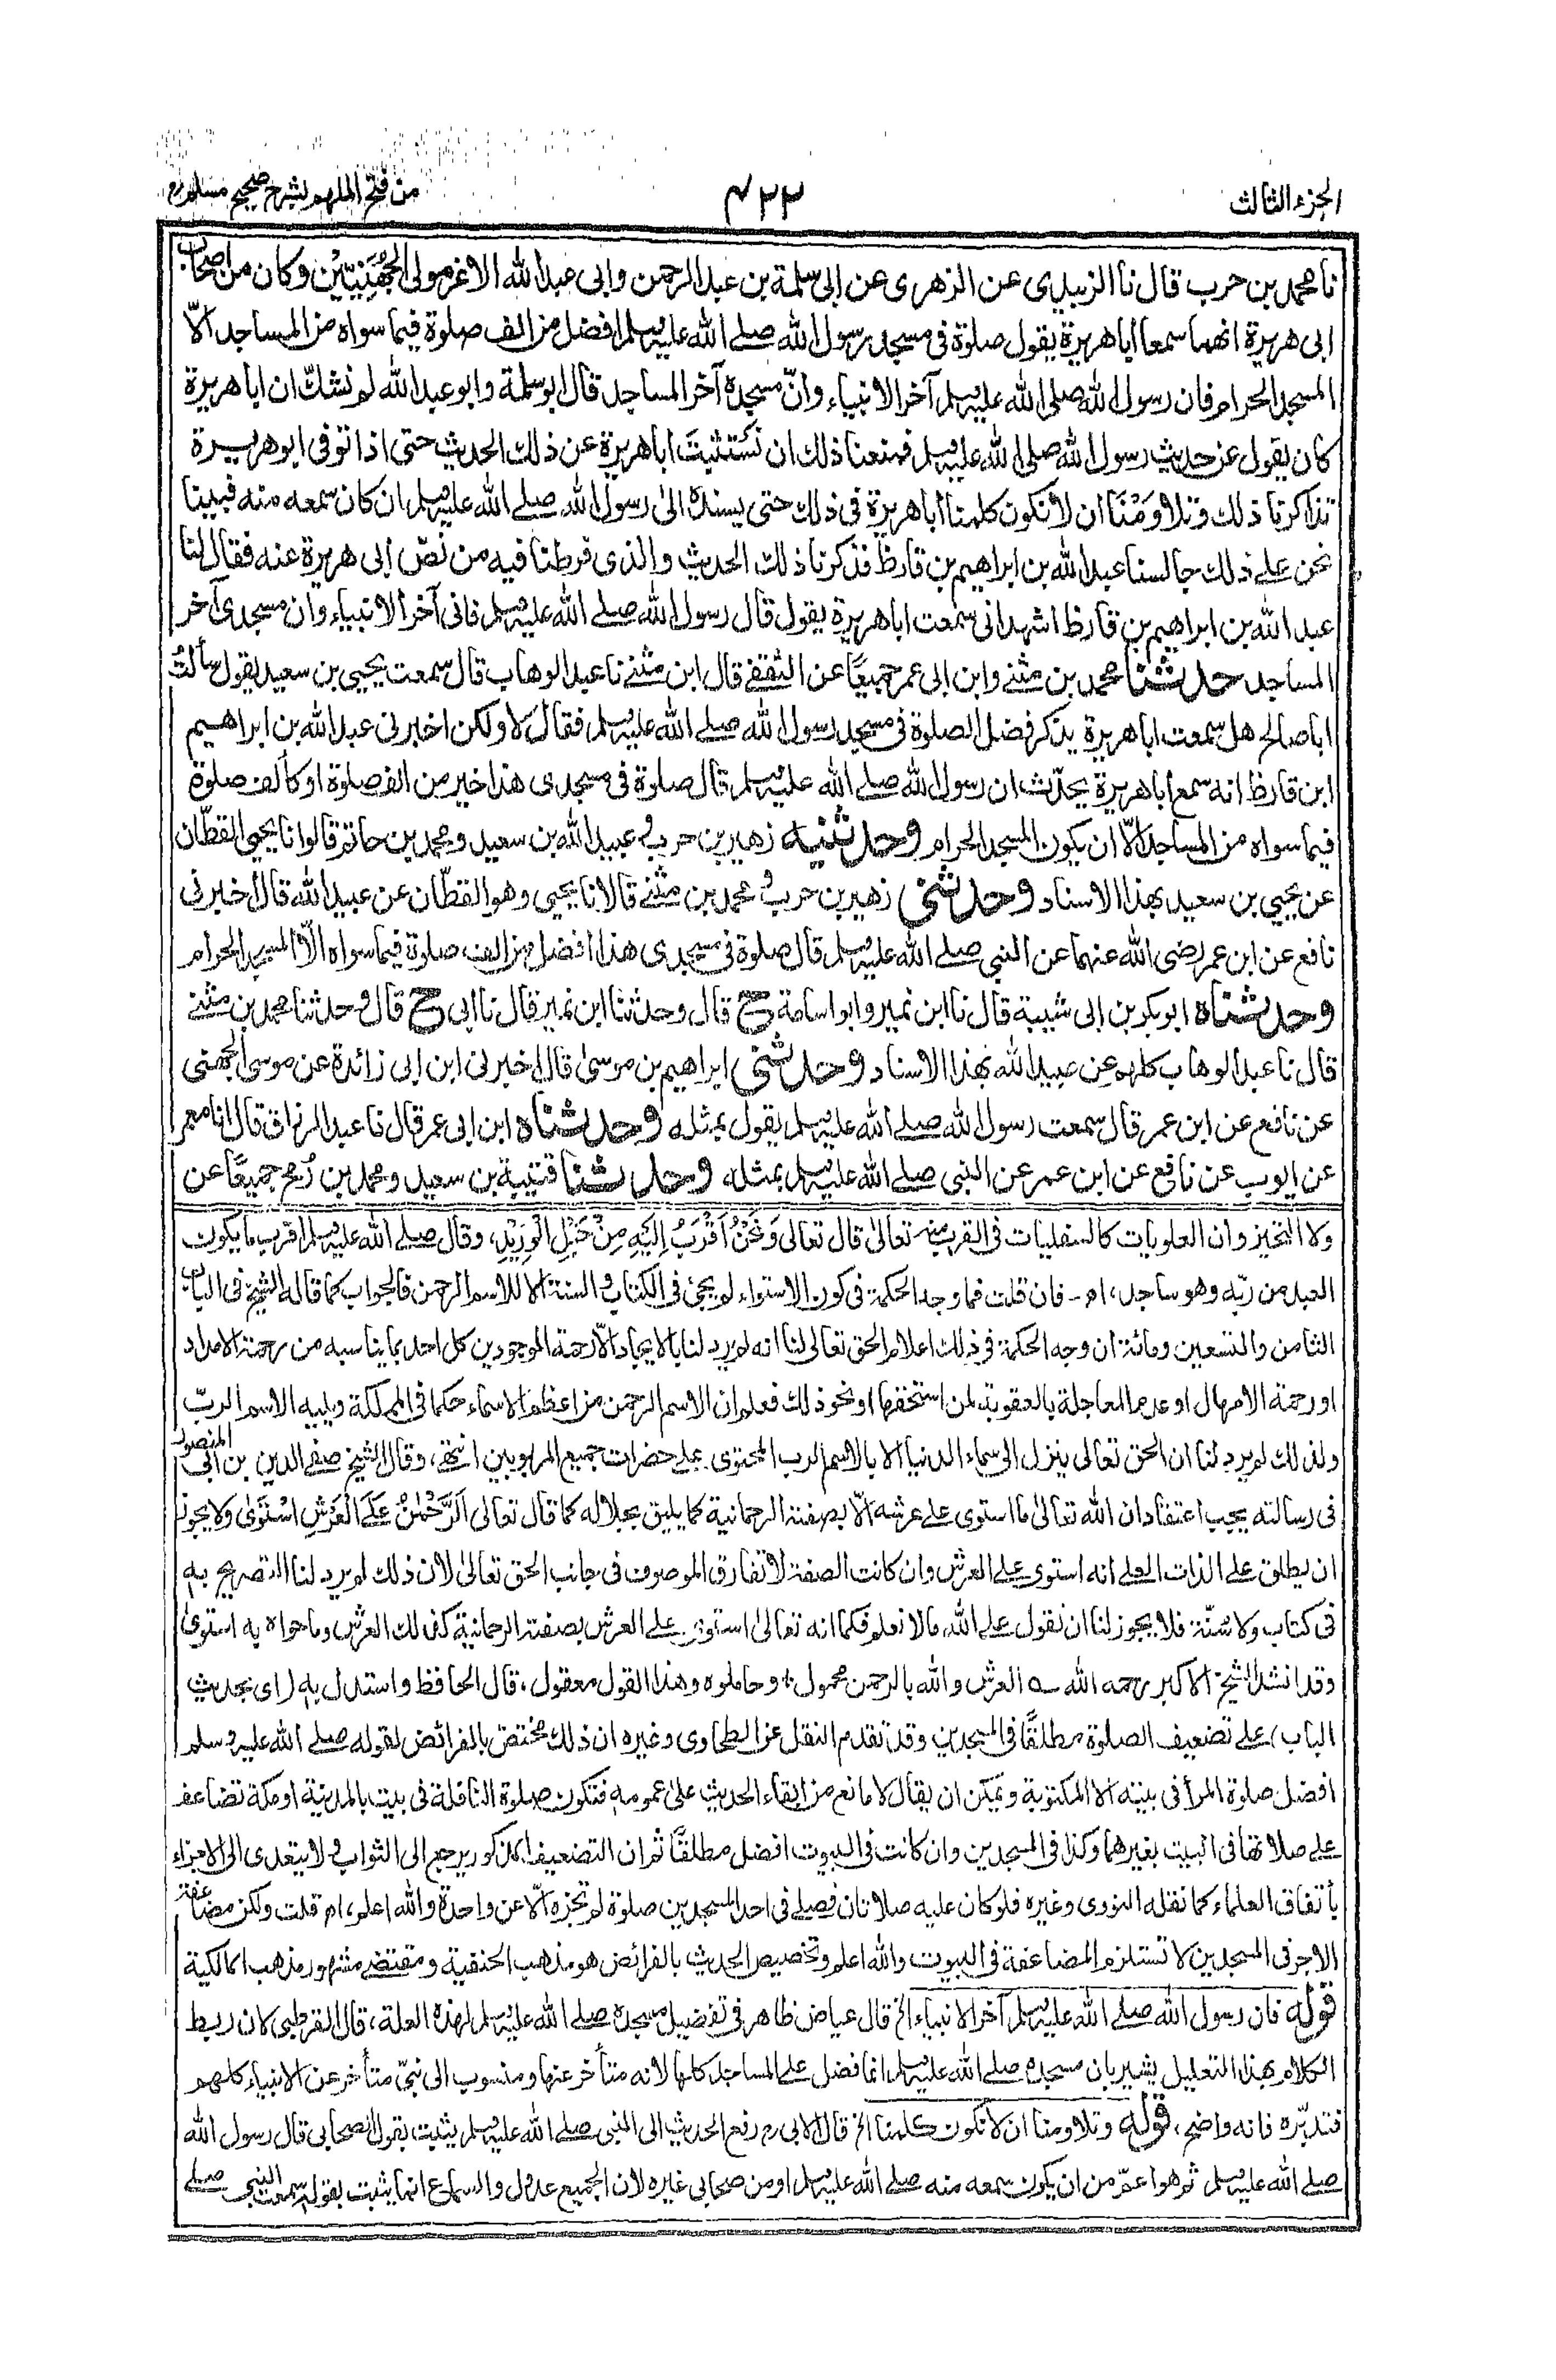 الجزء الثالث
۴۲۲
من فتح الملهم بشرح صحيح مسلم
نا محمد بن حرب قال نا الزبيدى عن الزهرى عن ابى سلمة بن عبد الرحمن وابى عبد الله الاغر مولى الجُهَنِيّيْن وكان من اصحاب
ابى هريرة انهما سمعا أبا هريرة يقول صلوة فى مسجد رسول الله صلے الله عليه وسلم افضل من الف صلوة فيما سواه من المساجد الّا
المسجد الحرام فان رسول الله صلى الله عليه وسلم آخر الانبياء وانّ مسجده آخر المساجد قال ابو سلمة وابو عبد الله لم نشكّ ان ابا هريرة
كان يقول عن حديث رسول الله صلى الله عليه وسلم فمنعنا ذلك ان نَستثبتَ ابا هريرة عن ذلك الحديث حتى اذا توفى ابو هريرة
تذاكرنا ذلك وتلاومْنَا ان لا نكون كلمنا أبا هريرة فى ذلك حتى يسنده الىٰ رسول الله صلے الله عليه وسلم ان كان سمعه منه فبينا
نحن علے ذلك جالسنا عبد الله بن ابراهيم بن قارظ فذكرنا ذلك الحديث والذى فرطنا فيه من نصّ ابى هريرة عنه فقال لنا
عبد الله بن ابراهيم بن قارظ اشهد انى سمعت ابا هريرة يقول قال رسول الله صلے الله عليه وسلم فانى آخر الانبياء وان مسجدى آخر
المساجد حدثنا محمد بن مثنے وابن ابى عمر جميعًا عن الثقفے قال ابن مثنے نا عبد الوهاب قال سمعت يحيى بن سعيد يقول سألتُ
ابا صالح هل سمعت ابا هريرة يذكر فضل الصلوة فى مسجد رسول الله صلے الله عليه وسلم فقال لا ولكن اخبرنى عبد الله بن ابراهيم
ابن قارظ انه سمع ابا هريرة يحدّث ان رسول الله صلے الله عليه وسلم قال صلوة فى مسجدى هذا خير من الف صلوة او كألف صلوة
فيما سواه من المساجد الّا ان يكون المسجد الحرام وحدثنيه زهير بن حرب و عبيد الله بن سعيد ومحمد بن حاتم قالوا نا يحيى القطّان
عن يحيى بن سعيد بهذا الاسناد وحدثنى زهير بن حرب و محمد بن مثنے قالا نا يحيى وهو القطّان عن عبيد الله قال اخبرنى
نافع عن ابن عمر رضى الله عنهما عن النبى صلے الله عليه وسلم قال صلوة فى مسجدى هذا افضل من الف صلوة فيما سواه الّا المسجد الحرام
وحدثناه ابو بكر بن ابى شيبة قال نا ابن نمير وابو اسامة ح قال وحدثنا ابن نمير قال نا ابى ح قال وحدثنا محمد بن مثنے
قال نا عبد الوهاب كلهم عن عبيد الله بهذا الاسناد وحدثنى ابراهيم بن موسىٰ قال اخبرنى ابن ابى زائدة عن موسى الجهنى
عن نافع عن ابن عمر قال سمعت رسول الله صلے الله عليه وسلم يقول بمثله وحدثناه ابن ابى عمر قال نا عبد الرزاق قال انا معمر
عن ايوب عن نافع عن ابن عمر عن النبى صلے الله عليه وسلم بمثله وحدثنا قتيبة بن سعيد ومحمد بن رُمح جميعًا عن
ولا التحيز وان العلويات كالسفليات فى القرب منه تعالىٰ قال تعالى وَنَحْنُ اَقْرَبُ اِلَيْهِ مِنْ حَبْلِ الْوَرِيْدِ، وقال صلے الله عليه وسلم اقرب ما يكون
العبد من ربّه وهو ساجد، اه۔ فان قلت فما وجه الحكمة فى كون الاستواء لم يجئ فى الكتاب والسنة الا للاسم الرحمن فالجواب كما قاله الشيخ فى الباب
الثامن والتسعين ومائة ان وجه الحكمة فى ذلك اعلام الحق تعالى لنا انه لم يرد لنا بالايجاد الّا رحمة الموجودين كل احد بما يناسبه من رحمة الامداد
او رحمة الامهال او عدم المعاجلة بالعقوبة لمن استحقها او نحو ذلك فعلم ان الاسم الرحمن من اعظم الاسماء حكما فى المملكة ويليه الاسم الربّ
ولذلك لم يرد لنا ان الحق تعالى ينزل الى سماء الدنيا الا بالاسم الرب المحتوى علے حضرات جميع المربوبين انتهے، وقال الشيخ صفے الدين بن ابى المنصور
فى رسالته يجب اعتقاد ان الله تعالىٰ ما استوى علے عرشه الّا بصفة الرحمانية كما يليق بجلاله كما قال تعالى اَلرَّحْمٰنُ عَلَے الْعَرْشِ اسْتَوٰى ولا يجوز
ان يطلق علے الذات العلے انه استوى علے العرش وان كانت الصفة لا تفارق الموصوف فى جانب الحق تعالىٰ لان ذلك لم يرد لنا التصريح به
فى كتاب ولا سُنّة فلا يجوز لنا ان نقول علے الله ما لا نعلم فكما انه تعالىٰ استوى علے العرش بصفة الرحمانية كذلك العرش وما حواه به استوىٰ
وقد انشد الشيخ الاكبر رحمه الله ؎ العرش والله بالرحمن محمول ÷ وحاملوه وهذا القول معقول، قال الحافظ واستدل به (اى بحديث
الباب) علے تضعيف الصلوة مطلقًا فى المسجدين وقد تقدم النقل عن الطحاوى وغيره ان ذلك مختص بالفرائض لقوله صلے الله عليه وسلم
افضل صلوة المرأ فى بيته الا المكتوبة ويمكن ان يقال لا مانع من ابقاء الحديث علىٰ عمومه فتكون صلوة النافلة فى بيت بالمدينة او مكة تضاعف
علے صلاتها فى البيت بغيرهما وكذا فى المسجدين وان كانت فى البيوت افضل مطلقًا ثم ان التضعيف المذكور يرجع الى الثواب ولا يتعدى الى الاجزاء
باتفاق العلماء كما نقله النووى وغيره فلو كان عليه صلاتان فصلے فى احد المسجدين صلوة لم تجزه الّا عن واحدة والله اعلم، اه قلت ولكن مضاعفة
الاجر فى المسجدين لا تستلزم المضاعفة فى البيوت والله اعلم وتخصيص الحديث بالفرائض هو مذهب الحنفية ومقتضے مشهور مذهب المالكية
قوله فان رسول الله صلے الله عليه وسلم آخر الانبياء الخ قال عياض ظاهر فى تفضيل مسجده صلے الله عليه وسلم لهذه العلة، قال القرطبى كان ربط
الكلام بهذا التعليل يشير بان مسجده صلے الله عليه وسلم انما فضل علے المساجد كلها لانه متأخر عنها ومنسوب الى نبىّ متأخر عن الانبياء كلهم
فتدبّره فانه واضح، قوله وتلاومنا ان لا نكون كلمنا الخ قال الابى رح رفع الحديث الى النبى صلے الله عليه وسلم يثبت بقول الصحابى قال رسول الله
صلے الله عليه وسلم ثم هو اعمّ من ان يكون سمعه منه صلے الله عليه وسلم او من صحابى غيره لان الجميع عدول والسماع انما يثبت بقوله سمعت النبى صلے